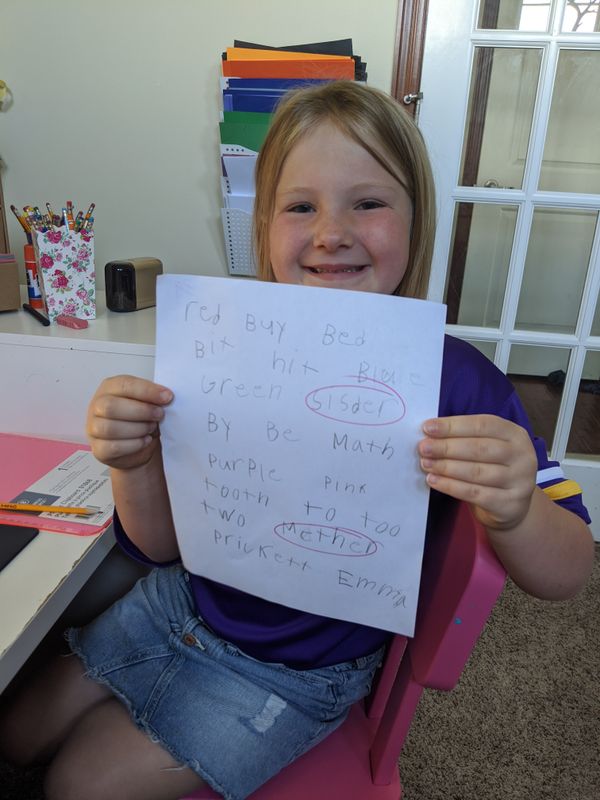 red Buy Bed
Bit hit Blue
Green Sisder
By Be Math
Purple Pink
tooth to too
two Mether
Prickett Emma